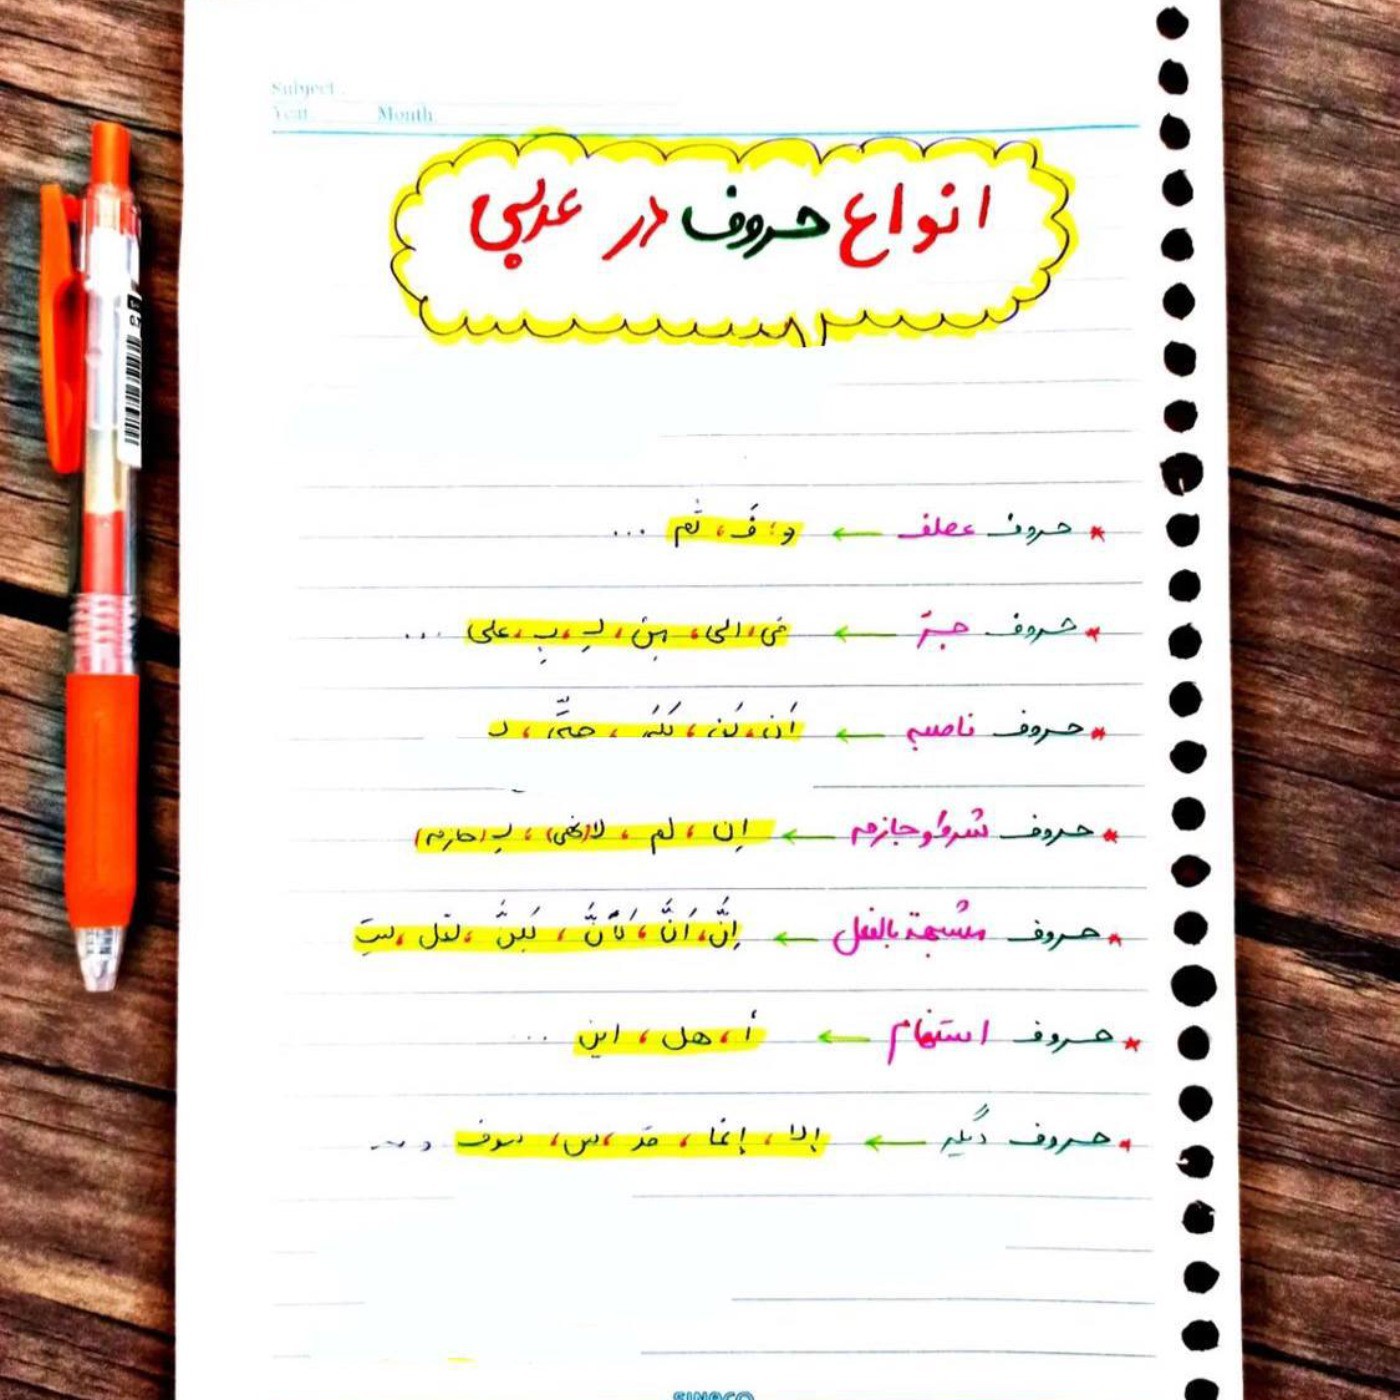 Subject:
Year Month
انواع حروف در عربی
* حروف عطف ← و، فَ، ثُم ...
* حروف جرّ ← فی، الی، مِن، لِـ، بِـ، علی ...
* حروف ناصبه ← أن، لَن، کَی، حتّی، لـ
* حروف شرط و جازمه ← إن، لم، لا(نهی)، لِـ(جازمه)
* حروف مشبهة بالفعل ← إنَّ، أنَّ، کَأنَّ، لکنَّ، لعَل، لیتَ
* حروف استفهام ← أ، هل، این ...
* حروف دیگر ← إلا، إنما، قد، س، سوف و ...